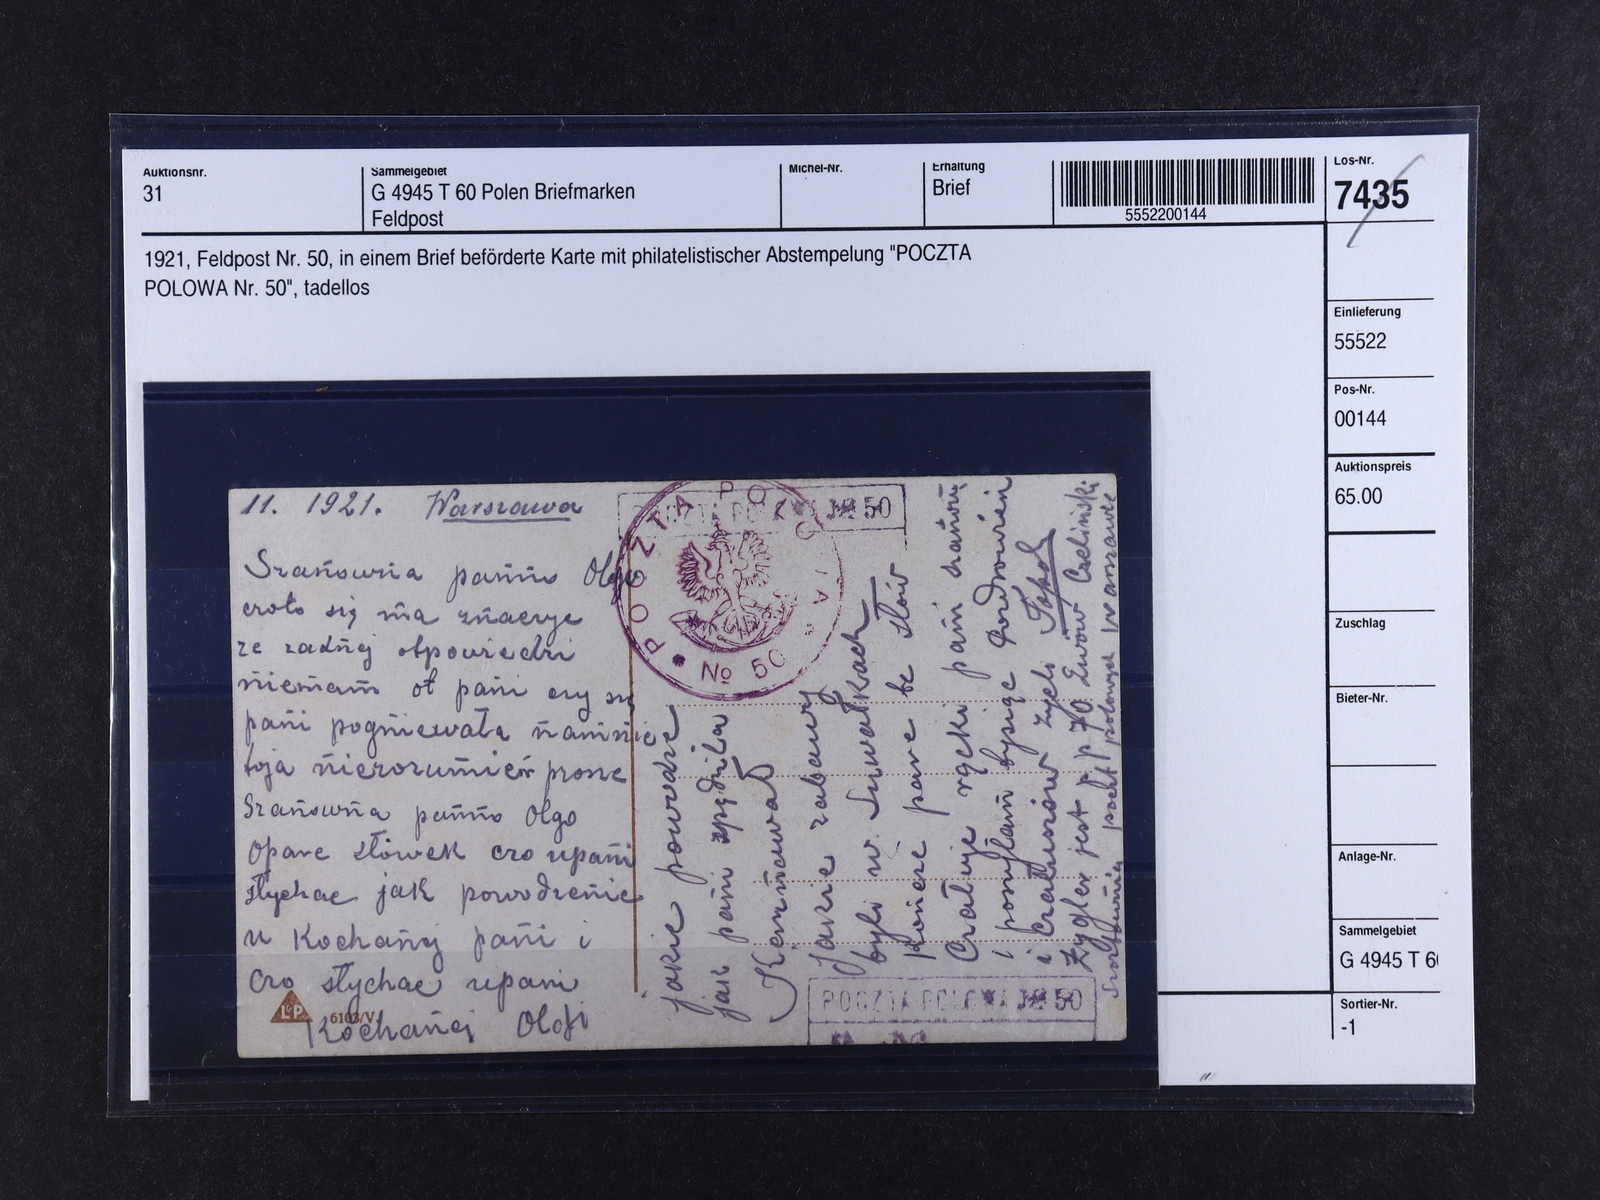 Auktionsnr.
31
Sammelgebiet
G 4945 T 60 Polen Briefmarken
Feldpost
Michel-Nr.
Erhaltung
Brief
5552200144
Los-Nr.
7435
1921, Feldpost Nr. 50, in einem Brief beförderte Karte mit philatelistischer Abstempelung "POCZTA
POLOWA Nr. 50", tadellos
Einlieferung
55522
Pos-Nr.
00144
Auktionspreis
65.00
Zuschlag
Bieter-Nr.
Anlage-Nr.
Sammelgebiet
G 4945 T 6
Sortier-Nr.
-1
11. 1921. Warszawa
Szanowna panno Olgo
croto się ma znaczyc
ze zadnej otpowiedzi
niemam ot pani czy
pani pogniewała namnie
toja nierozumiem prosze
Szanowna panno Olgo
opare słówek cro upani
słychac jak powodzenie
u Kochanej pani i
cro słychac upani
Kochanej Olgi
L&P
6103/V
POCZTA POLOWA № 50
№ 50
jakie powodze
jak pani spędziła
jakie zabawy
byli w. Suwałkach
Koncze pare te słów
Crałuje rączki pani
i posyłam tysiąc
i crałusów
Zygler jest p. p. 70
POCZTA POLOWA № 50